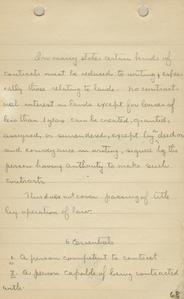 In many states certain kinds of
contracts must be reduced to writing, espe-
cially those relating to lands. No contract-
ual interest in lands except for leases of
less than 1 year can be created, granted,
assigned, or surrendered, except by deed or
and conveyance in writing, signed by the
person having authority to make such
contracts.
This does not cover passing of title
by operation of law.
6 Essentials
I. A person competent to contract
II. A person capable of being contracted
with.
65